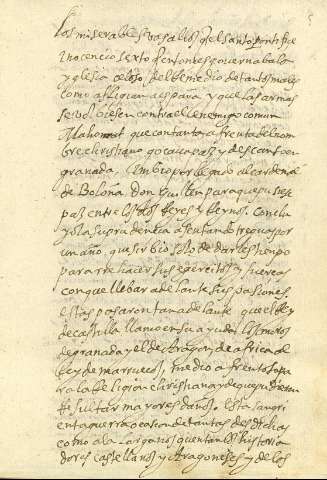 los miserables vasallos q el santo pontifice
inocencio sexto q entonces governaba la
yglesia celoso del Remedio de tantos males
como afligian a españa y que las armas
se volviesen contra el enemigo comun
Mahomet que con tanta afrenta del nom
bre christiano goçava paz y descanso en
granada, embio por legado al cardenal
de Boloña don Guillen para que pusiese
paz entre los dos Reyes y Reynos. Conclu
yo la su prudencia asentando treguas por
un año, que sirbio solo de darles tiempo
para rehacer sus exercitos y fuerças
con que llebar adelante sus pasiones.
estas pasaron tan adelante que el Rey
de castilla llamo en su ayuda los moros
de granada y el de Aragon, de africa el
Rey de marruecos, medio afrentoso pa
ra la Religion christiana y de que pudieran
Resultar mayores daños. Esta sangri
enta guerra ocasion de tantas desdichas
como a la larga nos quentan los historia
dores castellanos y Aragoneses y de los